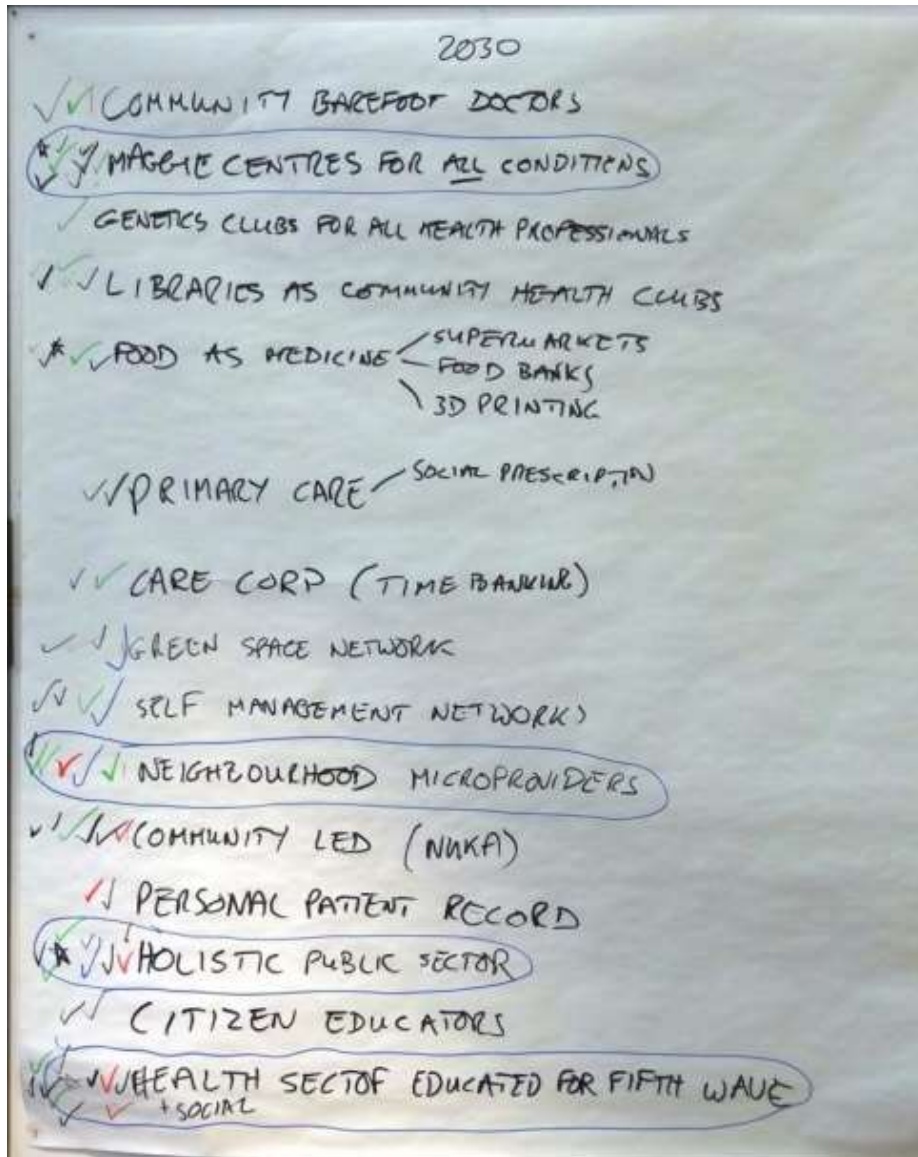 2030
COMMUNITY BAREFOOT DOCTORS
MAGGIE CENTRES FOR ALL CONDITIONS
GENETICS CLUBS FOR ALL HEALTH PROFESSIONALS
LIBRARIES AS COMMUNITY HEALTH CLUBS
FOOD AS MEDICINE
SUPERMARKETS
FOOD BANKS
3D PRINTING
PRIMARY CARE
SOCIAL PRESCRIPTIN
CARE CORP (TIME BANKING)
GREEN SPACE NETWORK
SELF MANAGEMENT NETWORKS
NEIGHBOURHOOD MICROPROVIDERS
COMMUNITY LED (NUKA)
PERSONAL PATIENT RECORD
HOLISTIC PUBLIC SECTOR
CITIZEN EDUCATORS
HEALTH SECTOR EDUCATED FOR FIFTH WAVE
+ SOCIAL